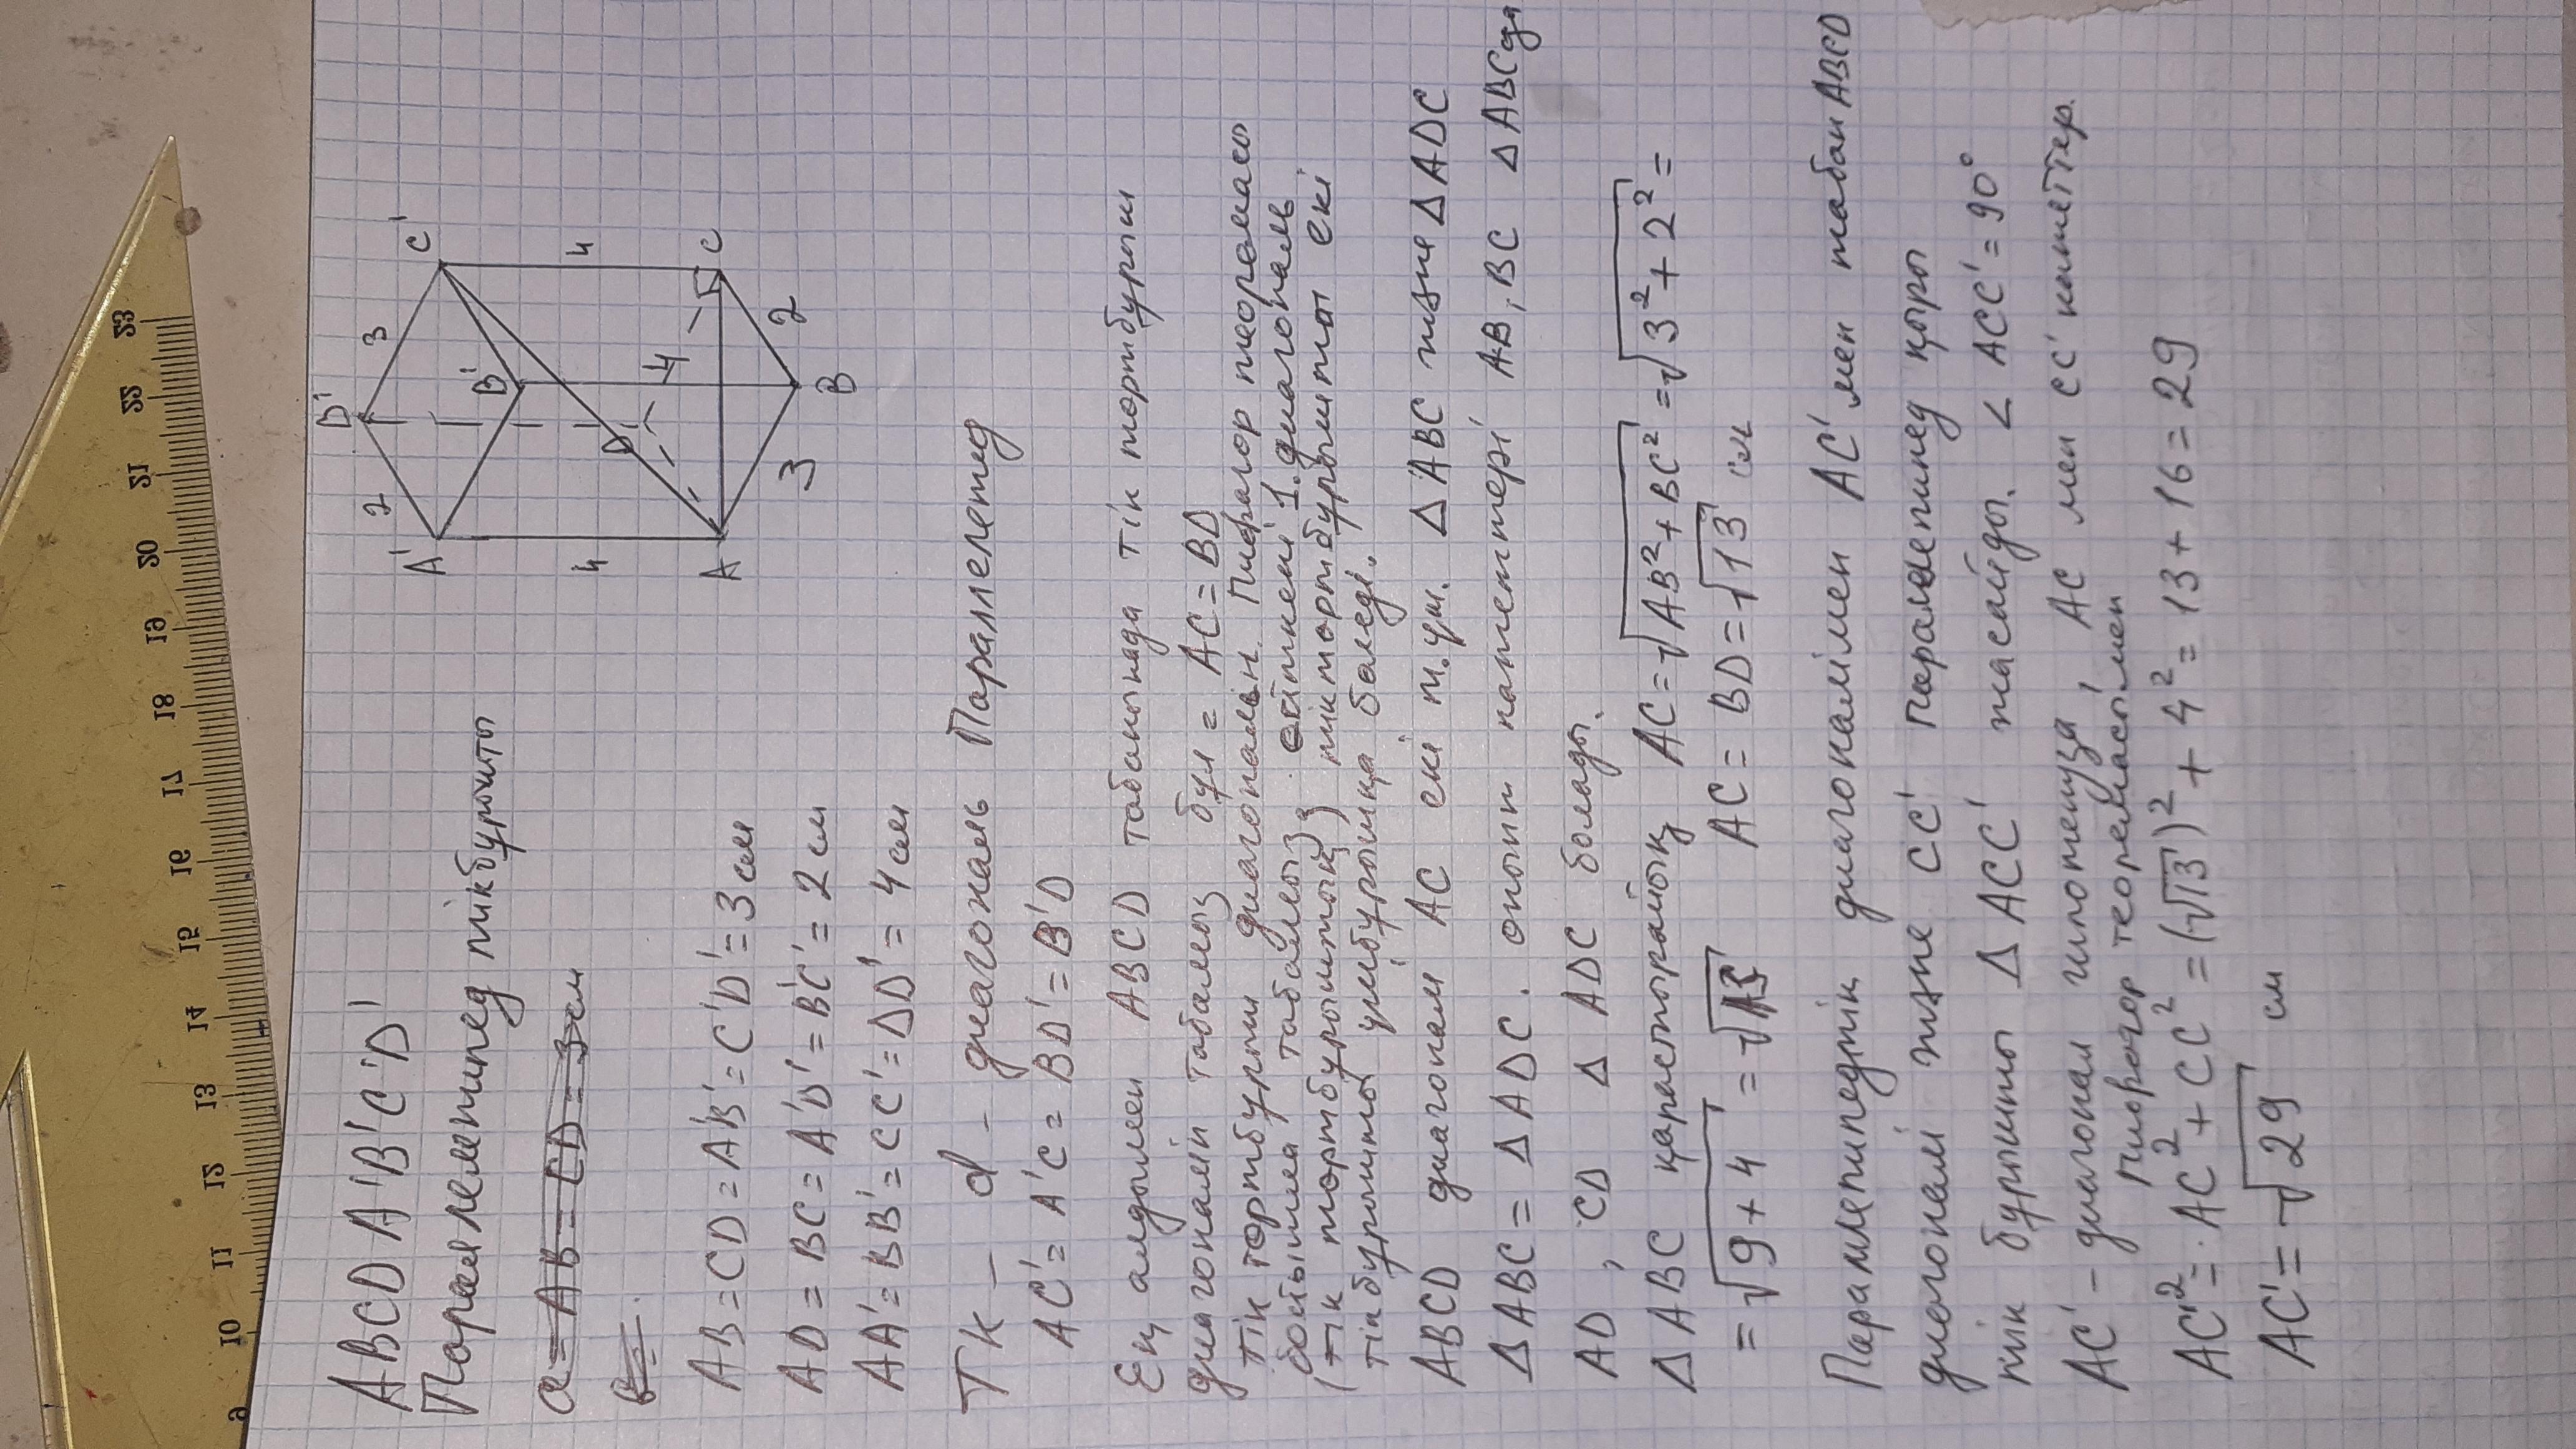 ABCD A'B'C'D'
Параллепипед тікбұрышты
a = AB = CD = 3см
в =
AB = CD = A'B' = C'D' = 3см
AD = BC = A'D' = B'C' = 2см
AA' = BB' = CC' = DD' = 4см
A'
B'
C'
D'
A
B
C
D
2
3
4
4
4
3
2
ТК – d – диагональ Параллепепед
AC' = A'C = BD' = B'D
Ең алдымен ABCD табанында тік тортбурыш
диагоналін табамыз бул = AC = BD
тік тортбурыш диагональн. Пифагор теоремасы
бойынша табамыз. өйткені 1 диагональ
(тік тортбурыштың) тік тортбурышты екі
тікбурышты үшбурышқа бөледі.
ABCD диагонали AC екі т. үш. Δ ABC және Δ ADC
Δ ABC = Δ ADC. онын катеттері AB, BC Δ ABCда
AD, CD Δ ADC болады.
Δ ABC қарастырайық AC = √AB² + BC² = √3² + 2² =
= √9 + 4 = √13 AC = BD = √13 см
Параллепипедтің диагоналімен AC' мен табан ABCD
диагоналі және CC' параллепипед қыры
тік бурышты Δ ACC' жасайды. < ACC' = 90°
AC' – диагонал гипотенуза, AC мен CC' катеттер.
Пифагор теоремасымен
AC'² = AC² + CC'² = (√13)² + 4² = 13 + 16 = 29
AC' = √29 см
9 10 11 12 13 14 15 16 17 18 19 20 21 22 23